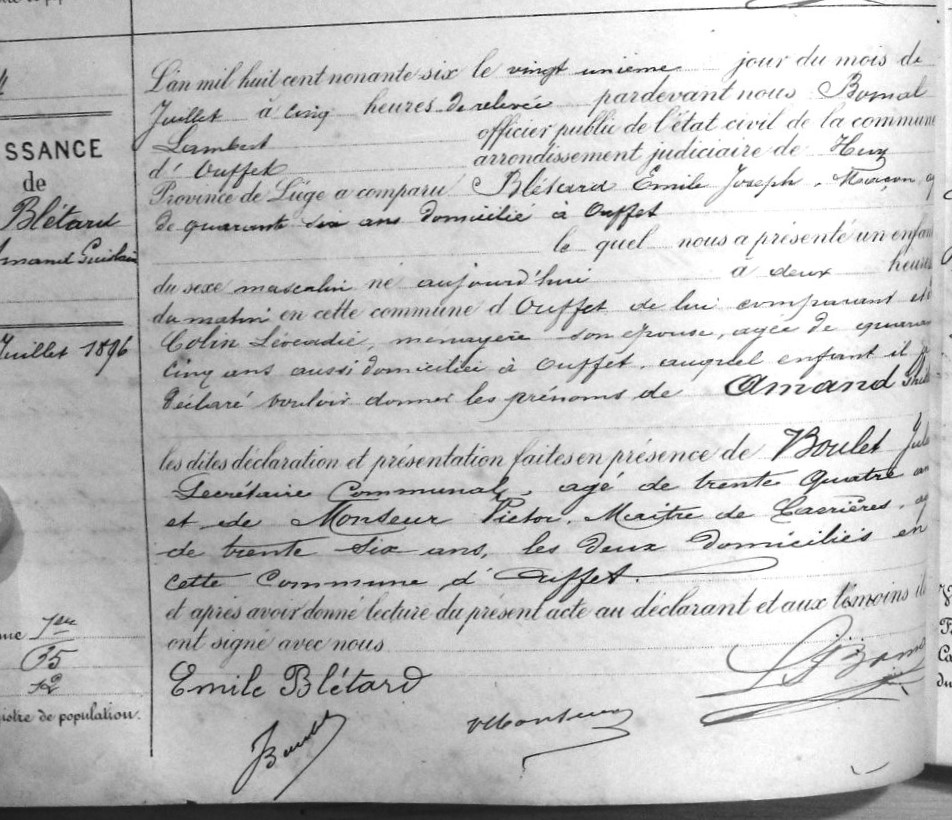 SSANCE
de
Blétard
mand Guislain
Juillet 1896
L'an mil huit cent nonante six le vingt unième jour du mois de
Juillet à cinq heures de relevée pardevant nous Bomal
Lambert officier public de l'état civil de la commune
d'Ouffet arrondissement judiciaire de Huy
Province de Liége a comparu Blétard Emile Joseph, Maçon,
de quarante six ans domicilié à Ouffet
le quel nous a présenté un enfant
du sexe masculin né aujourd'hui à deux heures
du matin en cette commune d'Ouffet de lui comparant et
Colin Léocadie, menagère son epouse, agée de quarante
cinq ans aussi domiciliée à Ouffet, auquel enfant il a
déclaré vouloir donner les prénoms de Amand
les dites déclaration et présentation faites en présence de Boulet Jules
Secrétaire Communal, agé de trente quatre ans
et de Monseur Victor, Maitre de Carrières,
de trente six ans, les deux domiciliés en
cette Commune d'Ouffet.
et après avoir donné lecture du présent acte au déclarant et aux témoins ils
ont signé avec nous
Emile Blétard
VMonseur
65
12
istre de population.